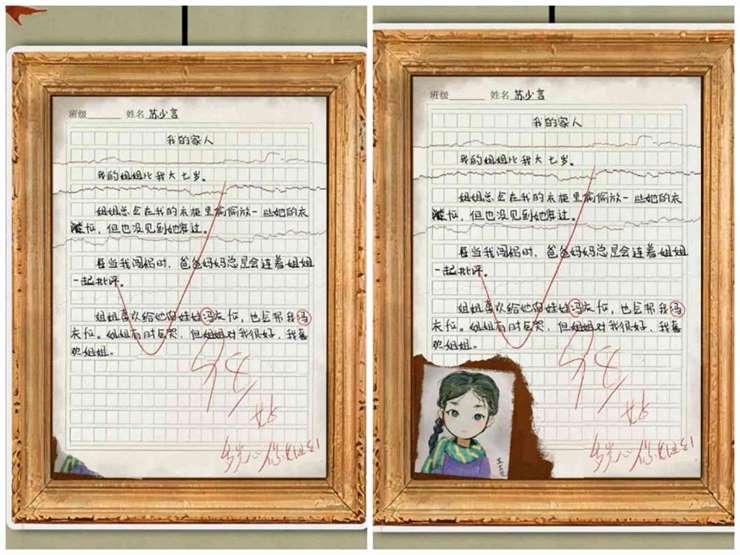 班级______ 姓名 苏少言
我的家人
我的姐姐比我大七岁。
姐姐总会在我的衣柜里偷偷放一些她的衣
服，但也没见到她穿过。
每当我闯祸时，爸爸妈妈总是会连着姐姐
一起批评。
姐姐喜欢给她的娃娃冯衣服，也会帮我冯
衣服。姐姐有时会哭，但姐姐对我很好，我喜
欢姐姐。
班级______ 姓名 苏少言
我的家人
我的姐姐比我大七岁。
姐姐总会在我的衣柜里偷偷放一些她的衣
服，但也没见到她穿过。
每当我闯祸时，爸爸妈妈总是会连着姐姐
一起批评。
姐姐喜欢给她的娃娃冯衣服，也会帮我冯
衣服。姐姐有时会哭，但姐姐对我很好，我喜
欢姐姐。